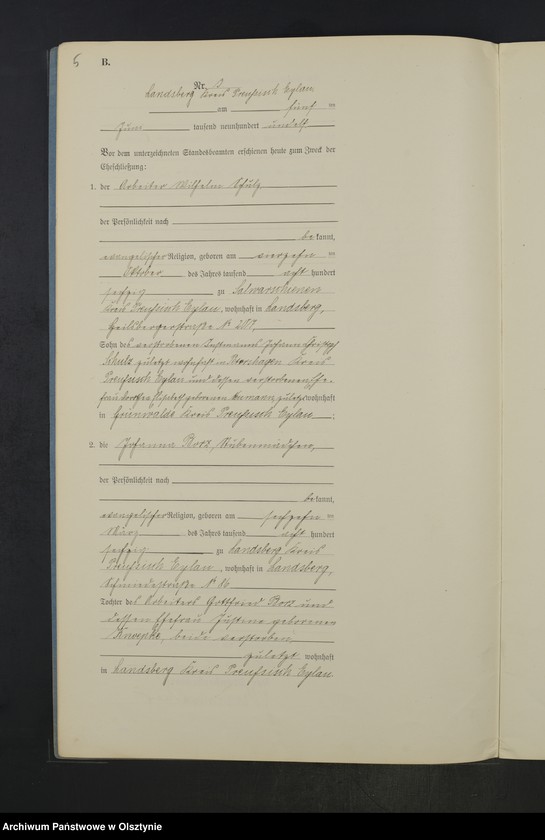 5
B.
Nr.
Landsberg Kreis Preußisch Eylau
am fünf ten
Juni tausend neunhundert und elf
Vor dem unterzeichneten Standesbeamten erschienen heute zum Zweck der
Eheschließung:
1. der Arbeiter Wilhelm Schulz
der Persönlichkeit nach
be kannt,
evangelischer Religion, geboren am vierzehn ten
Oktober des Jahres tausend acht hundert
sechzig zu Salwarschienen
Kreis Preußisch Eylau, wohnhaft in Landsberg,
Heilsbergerstraße N
Sohn des verstorbenen Johann
Schulz zuletzt wohnhaft in Petershagen Kreis
Preußisch Eylau und dessen verstorbenen Ehe-
frau geborenen Hermann zuletzt wohnhaft
in Grünwalde Kreis Preußisch Eylau
2. die Johanna Rosz, Stubenmädchen,
der Persönlichkeit nach
be kannt,
evangelischer Religion, geboren am sechzehn ten
März des Jahres tausend acht hundert
sechzig zu Landsberg Kreis
Preußisch Eylau, wohnhaft in Landsberg,
Schmiedestraße N 86
Tochter des Arbeiters Gottfried Rosz und
dessen Ehefrau Justine geborenen
Knoepke, beide verstorben,
zuletzt wohnhaft
in Landsberg Kreis Preußisch Eylau
Archiwum Państwowe w Olsztynie